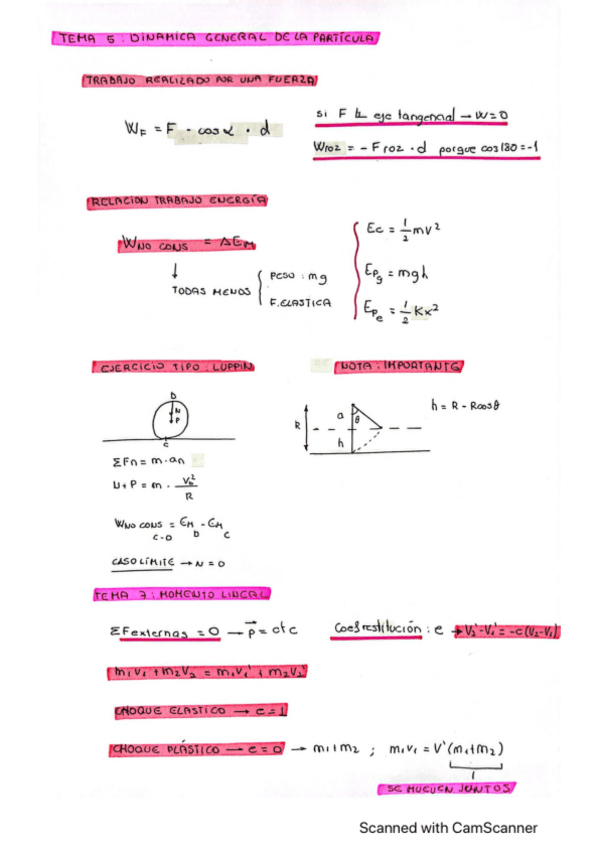 TEMA 5 : DINAMICA GENERAL DE LA PARTÍCULA
TRABAJO REALIZADO POR UNA FUERZA
WF = F · cosα · d
si F ⊥ eje tangencial → W=0
Wroz = - Froz · d porque cos180=-1
RELACION TRABAJO ENERGÍA
WNO CONS = ΔEM
TODAS MENOS
PESO : mg
F. ELASTICA
Ec = 1/2 mv²
Epg = mgh
Epe = 1/2 Kx²
EJERCICIO TIPO : LUPPIN
NOTA : IMPORTANTE
D
N
P
C
R
a
θ
h
h = R - Rcosθ
ΣFn = m·an
N+P = m · Vb²/R
WNO CONS = EM - EM
C-D D C
CASO LÍMITE → N = 0
TEMA 7 : MOMENTO LINEAL
ΣFexternas = 0 → p⃗ = ctc
Coef restitución : e → V2'-V1' = -e (V2-V1)
m1V1 + m2V2 = m1V1' + m2V2'
CHOQUE ELASTICO → e = 1
CHOQUE PLÁSTICO → e = 0 → m1+m2 ; m1V1 = V'(m1+m2)
SE MUEVEN JUNTOS
Scanned with CamScanner